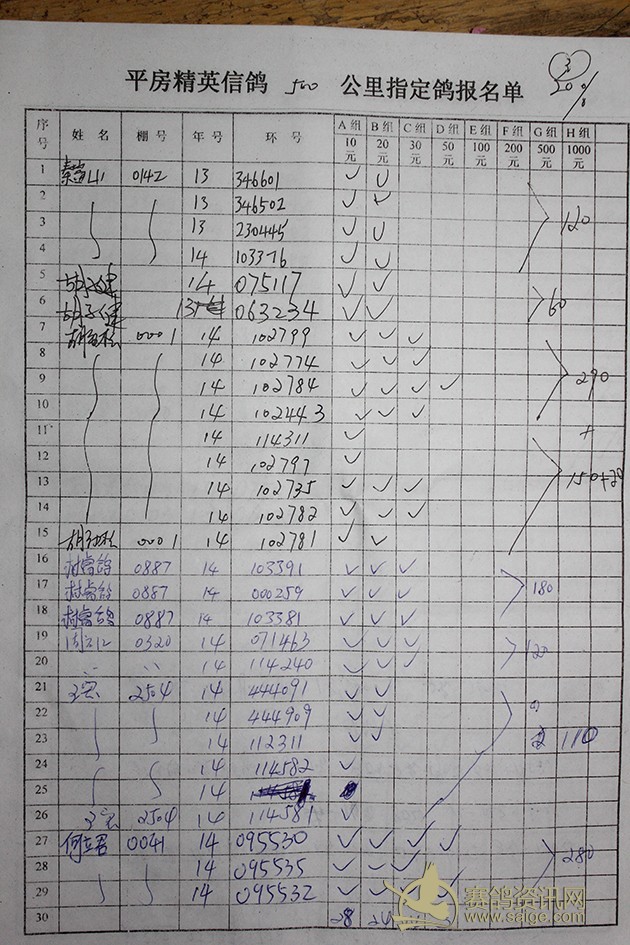 平房精英信鸽 500 公里指定鸽报名单
3
200
序号 姓 名 棚 号 年 号 环 号 A 组 B 组 C 组 D 组 E 组 F 组 G 组 H 组
10元 20元 30元 50元 100元 200元 500元 1000元
1 0142 13 346601 ✓ ✓
2 13 346502 ✓ ✓
3 13 230445 ✓ ✓ 120
4 14 103376 ✓ ✓
5 14 075117 ✓ ✓
6 13 063234 ✓ ✓ 60
7 0001 14 102799 ✓ ✓ ✓
8 14 102774 ✓ ✓ ✓
9 14 102784 ✓ ✓ ✓ ✓ 290
10 14 102443 ✓ ✓ ✓
11 14 114311 ✓ +
12 14 102797 ✓
13 14 102735 ✓ ✓ ✓ 150+30
14 14 102782 ✓ ✓ ✓
15 0001 14 102781 ✓ ✓
16 0887 14 103391 ✓ ✓ ✓
17 0887 14 000259 ✓ ✓ ✓ 180
18 0887 14 103381 ✓ ✓ ✓
19 0320 14 071463 ✓ ✓ ✓
20 14 114240 ✓ ✓ ✓ 120
21 2504 14 444091 ✓ ✓
22 14 444909 ✓ ✓
23 14 112311 ✓ ✓ 110
24 14 114582 ✓
25 14
26 2504 14 114581 ✓
27 0041 14 095530 ✓ ✓ ✓ ✓
28 14 095535 ✓ ✓ ✓ ✓ 280
29 14 095532 ✓ ✓ ✓ ✓
30 28 24
赛鸽资讯网
www.saige.com